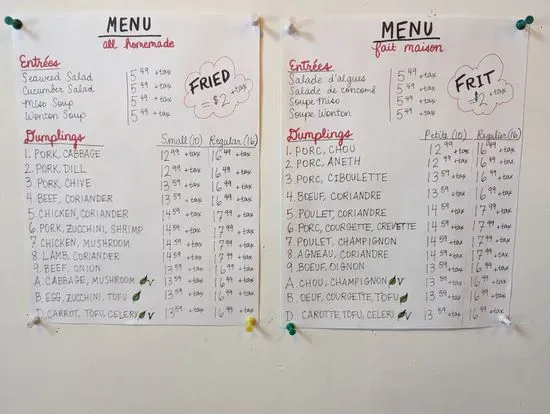 MENU
all homemade
Entrées
Seaweed Salad 5.49 +tax
Cucumber Salad 5.49 +tax
Miso Soup 5.49 +tax
Wonton Soup 5.49 +tax
FRIED
= $2 +tax
Dumplings Small (10) Regular (16)
1. PORK, CABBAGE 12.99 +tax 16.49 +tax
2. PORK, DILL 12.99 +tax 16.49 +tax
3. PORK, CHIVE 13.59 +tax 16.99 +tax
4. BEEF, CORIANDER 13.59 +tax 16.99 +tax
5. CHICKEN, CORIANDER 14.59 +tax 17.99 +tax
6. PORK, ZUCCHINI, SHRIMP 14.59 +tax 17.99 +tax
7. CHICKEN, MUSHROOM 14.59 +tax 17.99 +tax
8. LAMB, CORIANDER 14.59 +tax 17.99 +tax
9. BEEF, ONION 13.59 +tax 16.99 +tax
A. CABBAGE, MUSHROOM V 13.59 +tax 16.99 +tax
B. EGG, ZUCCHINI, TOFU 13.59 +tax 16.99 +tax
D. CARROT, TOFU, CELERY V 13.59 +tax 16.99 +tax
MENU
fait maison
Entrées
Salade d'algues 5.49 +tax
Salade de concom 5.49 +tax
Soupe Miso 5.49 +tax
Soupe Wonton 5.49 +tax
FRIT
= $2 +tax
Dumplings Petite (10) Regulier (16)
1. PORC, CHOU 12.99 +tax 16.49 +tax
2. PORC, ANETH 12.99 +tax 16.49 +tax
3. PORC, CIBOULETTE 13.59 +tax 16.99 +tax
4. BOEUF, CORIANDRE 13.59 +tax 16.99 +tax
5. POULET, CORIANDRE 14.59 +tax 17.99 +tax
6. PORC, COURGETTE, CREVETTE 14.59 +tax 17.99 +tax
7. POULET, CHAMPIGNON 14.59 +tax 17.99 +tax
8. AGNEAU, CORIANDRE 14.59 +tax 17.99 +tax
9. BOEUF, OIGNON 13.59 +tax 16.99 +tax
A. CHOU, CHAMPIGNON V 13.59 +tax 16.99 +tax
B. OEUF, COURGETTE, TOFU 13.59 +tax 16.99 +tax
D. CAROTTE, TOFU, CELERI V 13.59 +tax 16.99 +tax